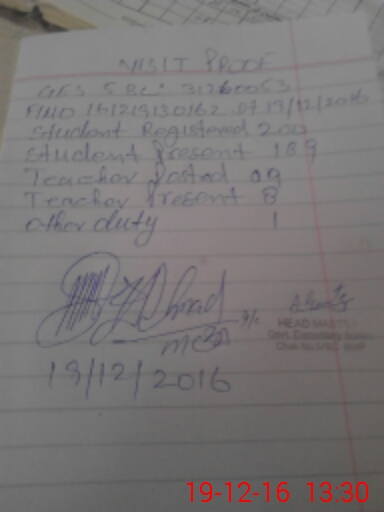 VISIT PROOF
GES 5 BC: 31260053
dt 19/12/2016
Student Registered 200
Student Present 189
Teacher Posted 09
Teacher Present 8
other duty 1
19/12/2016
HEAD MASTER
Govt. Elementary School
19-12-16 13:30